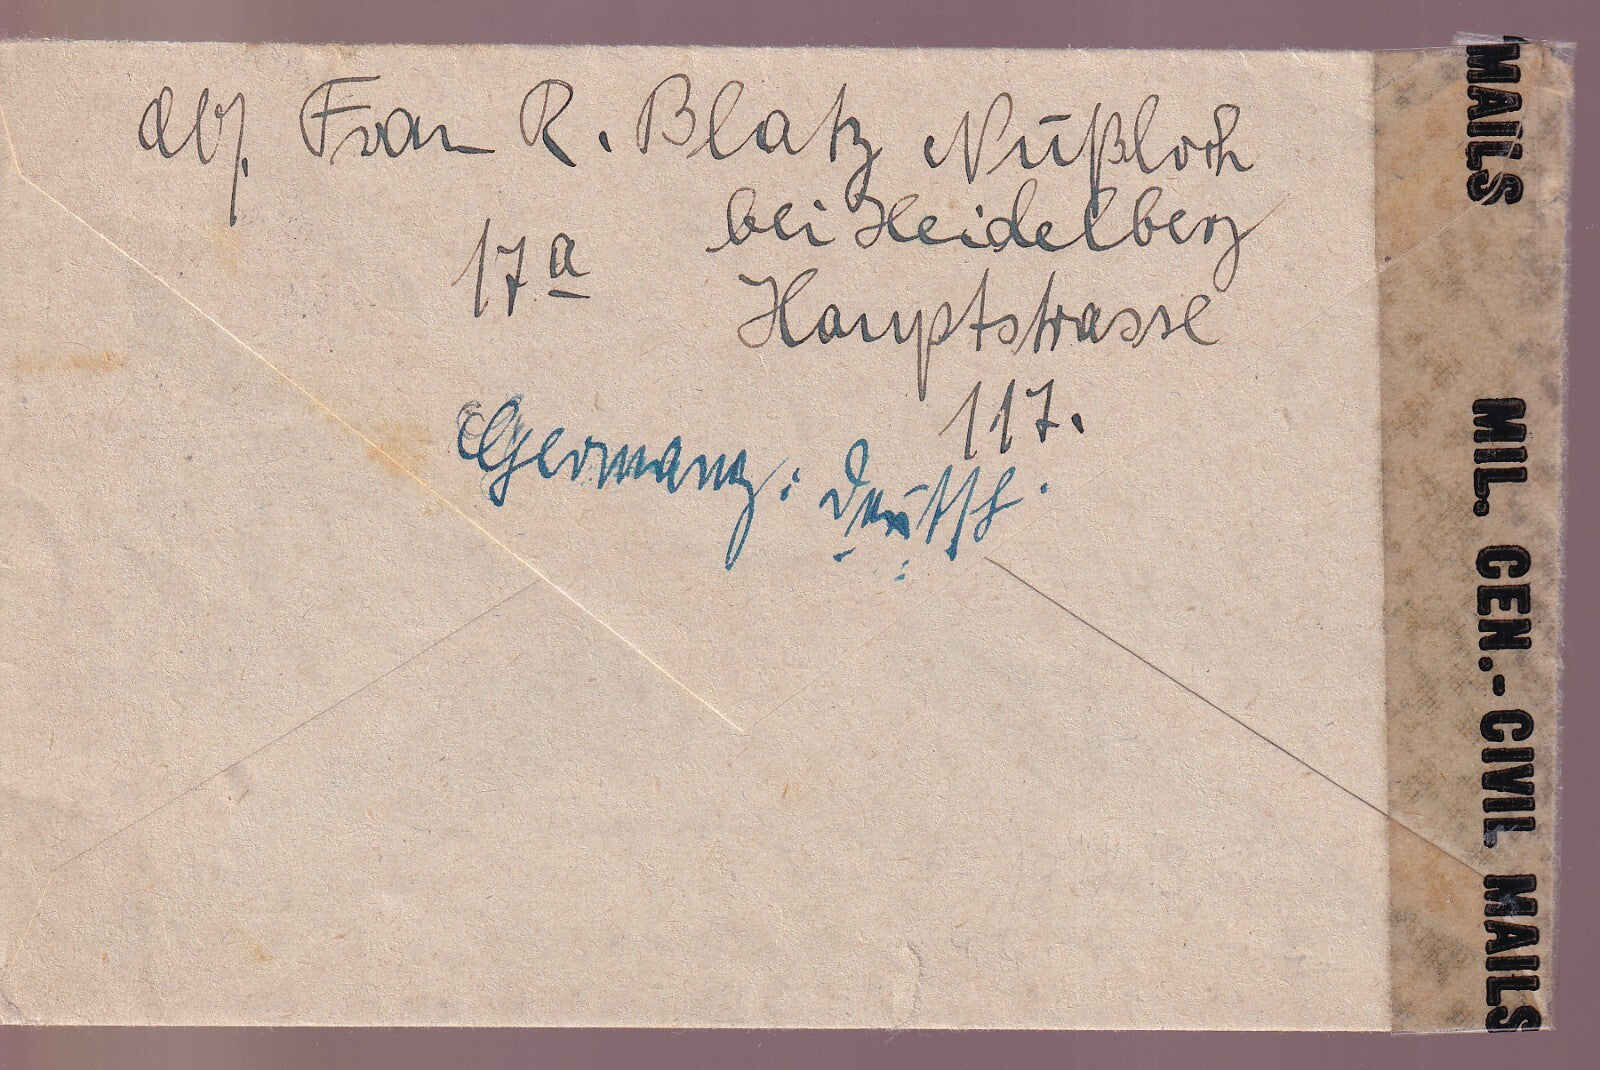 Abs. Frau R. Blatz Nußloch
bei Heidelberg
17a
Hauptstrasse
117.
Germany: Deutsch.
MAILS
MIL. CEN.-CIVIL MAILS